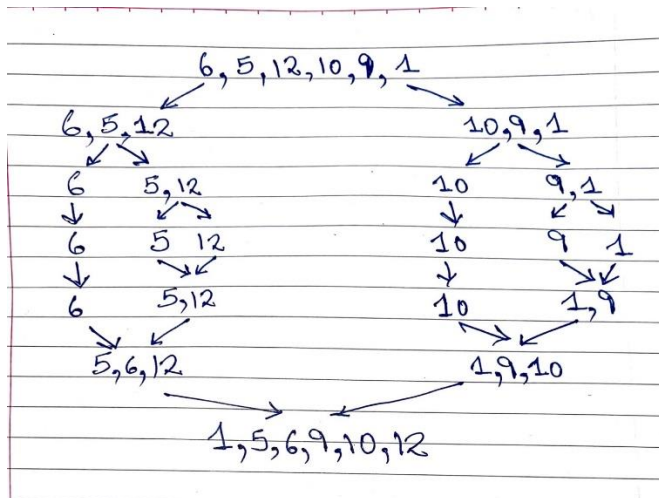 6, 5, 12, 10, 9, 1
6, 5, 12 10, 9, 1
6 5, 12 10 9, 1
6 5 12 10 9 1
6 5, 12 10 1, 9
5, 6, 12 1, 9, 10
1, 5, 6, 9, 10, 12